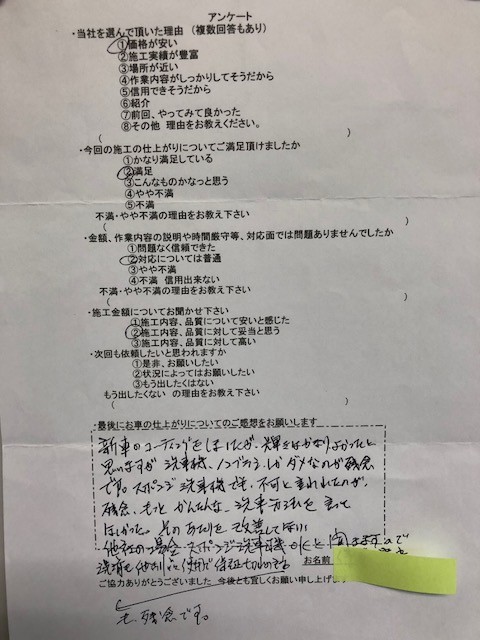 アンケート
・当社を選んで頂いた理由 (複数回答もあり)
①価格が安い
②施工実績が豊富
③場所が近い
④作業内容がしっかりしてそうだから
⑤信用できそうだから
⑥紹介
⑦前回、やってみて良かった
⑧その他 理由をお教えください。
( )
・今回の施工の仕上がりについてご満足頂けましたか
①かなり満足している
②満足
③こんなものかなっと思う
④やや不満
⑤不満
不満・やや不満の理由をお教え下さい
( )
・金額、作業内容の説明や時間厳守等、対応面では問題ありませんでしたか
①問題なく信頼できた
②対応については普通
③やや不満
④不満 信用出来ない
不満・やや不満の理由をお教え下さい
( )
・施工金額についてお聞かせ下さい
①施工内容、品質について安いと感じた
②施工内容、品質に対して妥当と思う
③施工内容、品質に対して高い
・次回も依頼したいと思われますか
①是非、お願いしたい
②状況によってはお願いしたい
③もう出したくはない
もう出したくない の理由をお教え下さい
( )
・最後にお車の仕上がりについてのご感想をお願いします
新車のコーティングをしましたが、輝きはかなりよかったと
思いますが 洗車機、ノンブラシしかダメなのが残念
です。スポンジ洗車機でも、不可と言われたのが、
残念、もっとかんたんな、洗車方法を言って
ほしかった。そのあたりを改善してほしい
他社の場合 スポンジ洗車機
お名前
ご協力ありがとうございました 今後とも宜しくお願い申し上げます
も、残念です。